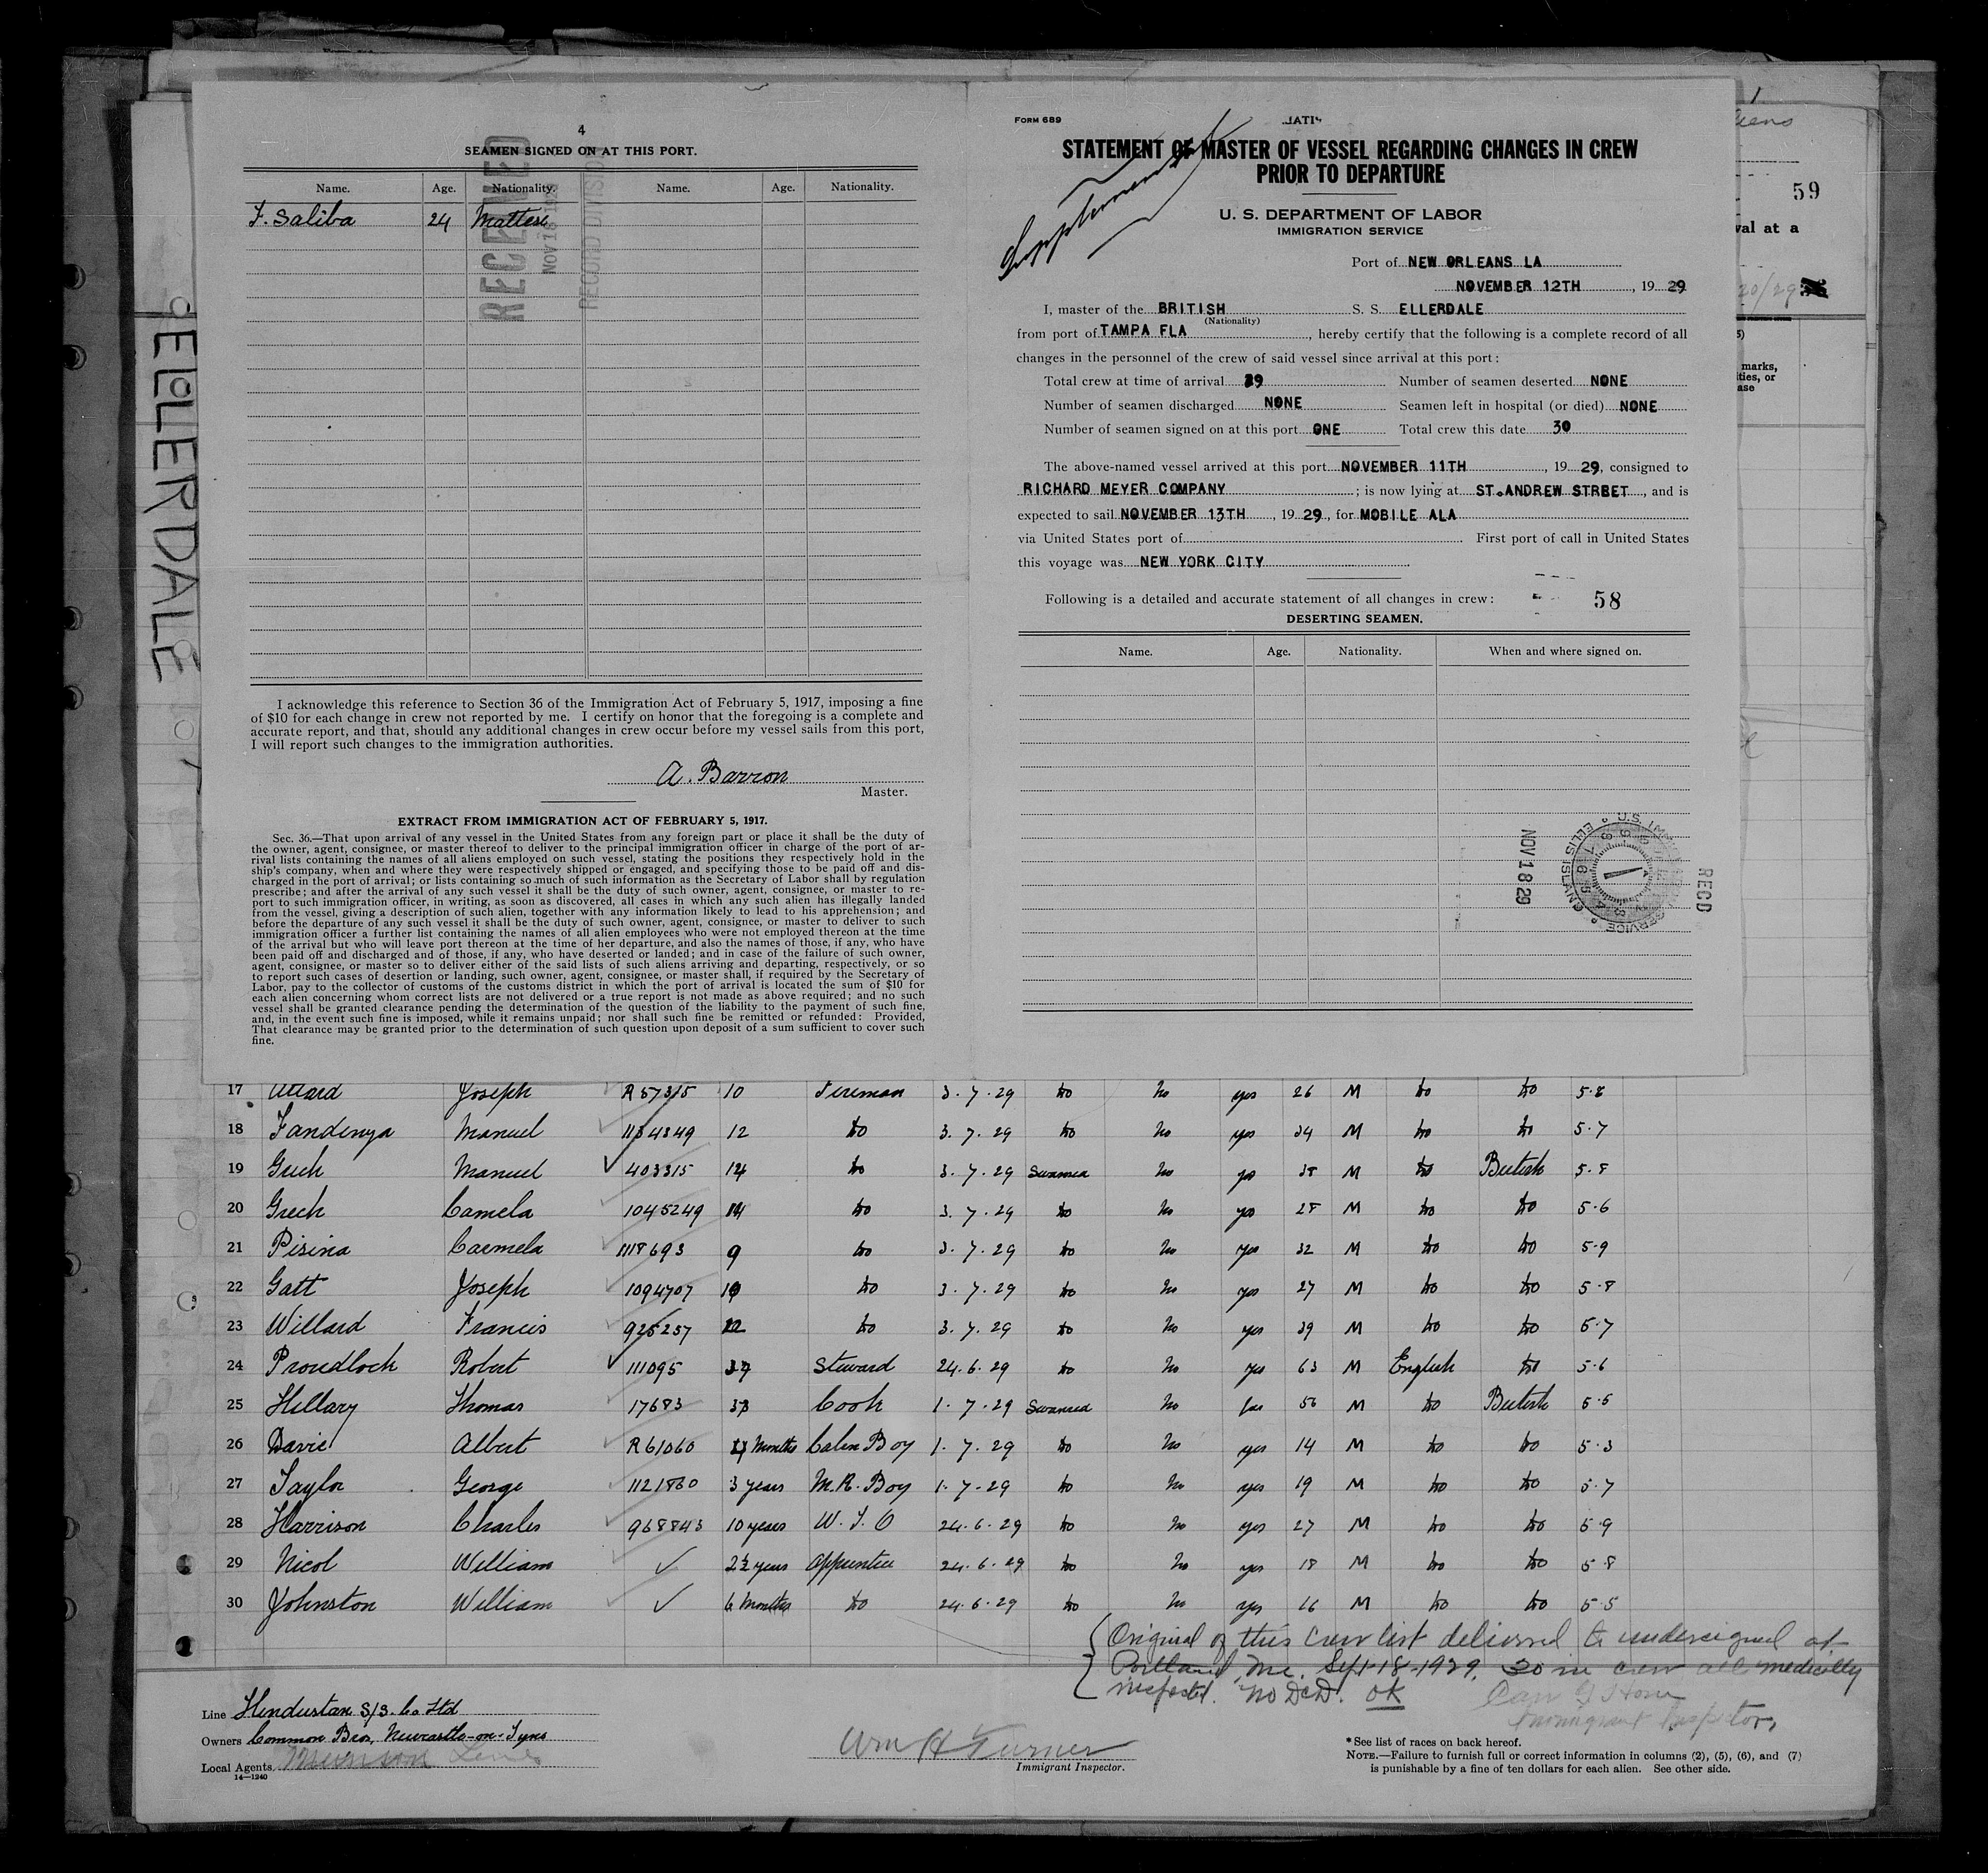 4
SEAMEN SIGNED ON AT THIS PORT.
Name. Age. Nationality. Name. Age. Nationality.
F. Saliba 24 Maltese
RECEIVED
NOV 18 1929
RECORD DIVISION
I acknowledge this reference to Section 36 of the Immigration Act of February 5, 1917, imposing a fine
of $10 for each change in crew not reported by me. I certify on honor that the foregoing is a complete and
accurate report, and that, should any additional changes in crew occur before my vessel sails from this port,
I will report such changes to the immigration authorities.
A. Barron
Master.
EXTRACT FROM IMMIGRATION ACT OF FEBRUARY 5, 1917.
Sec. 36.—That upon arrival of any vessel in the United States from any foreign part or place it shall be the duty of
the owner, agent, consignee, or master thereof to deliver to the principal immigration officer in charge of the port of ar-
rival lists containing the names of all aliens employed on such vessel, stating the positions they respectively hold in the
ship's company, when and where they were respectively shipped or engaged, and specifying those to be paid off and dis-
charged in the port of arrival; or lists containing so much of such information as the Secretary of Labor shall by regulation
prescribe; and after the arrival of any such vessel it shall be the duty of such owner, agent, consignee, or master to re-
port to such immigration officer, in writing, as soon as discovered, all cases in which any such alien has illegally landed
from the vessel, giving a description of such alien, together with any information likely to lead to his apprehension; and
before the departure of any such vessel it shall be the duty of such owner, agent, consignee, or master to deliver to such
immigration officer a further list containing the names of all alien employees who were not employed thereon at the time
of the arrival but who will leave port thereon at the time of her departure, and also the names of those, if any, who have
been paid off and discharged and of those, if any, who have deserted or landed; and in case of the failure of such owner,
agent, consignee, or master so to deliver either of the said lists of such aliens arriving and departing, respectively, or so
to report such cases of desertion or landing, such owner, agent, consignee, or master shall, if required by the Secretary of
Labor, pay to the collector of customs of the customs district in which the port of arrival is located the sum of $10 for
each alien concerning whom correct lists are not delivered or a true report is not made as above required; and no such
vessel shall be granted clearance pending the determination of the question of the liability to the payment of such fine,
and, in the event such fine is imposed, while it remains unpaid; nor shall such fine be remitted or refunded: Provided,
That clearance may be granted prior to the determination of such question upon deposit of a sum sufficient to cover such
fine.
ELLERDALE
FORM 689
Supplemental
STATEMENT OF MASTER OF VESSEL REGARDING CHANGES IN CREW
PRIOR TO DEPARTURE
U. S. DEPARTMENT OF LABOR
IMMIGRATION SERVICE
Port of NEW ORLEANS LA
NOVEMBER 12TH, 19 29
I, master of the BRITISH S. S. ELLERDALE
(Nationality)
from port of TAMPA FLA, hereby certify that the following is a complete record of all
changes in the personnel of the crew of said vessel since arrival at this port:
Total crew at time of arrival 29 Number of seamen deserted NONE
Number of seamen discharged NONE Seamen left in hospital (or died) NONE
Number of seamen signed on at this port ONE Total crew this date 30
The above-named vessel arrived at this port NOVEMBER 11TH, 19 29, consigned to
RICHARD MEYER COMPANY; is now lying at ST.ANDREW STRBET, and is
expected to sail NOVEMBER 13TH, 19 29, for MOBILE ALA
via United States port of First port of call in United States
this voyage was NEW YORK CITY
Following is a detailed and accurate statement of all changes in crew: 58
DESERTING SEAMEN.
Name. Age. Nationality. When and where signed on.
NOV 18 29
RECD
59
val at a
marks,
ities, or
ase
17 Attard Joseph R 57315 10 Fireman 3.7.29 do No yes 26 M do do 5.8
18 Fandenya Manuel 1134349 12 do 3.7.29 do No yes 34 M do do 5.7
19 Grech Manuel 403315 14 do 3.7.29 Swansea No yes 38 M do British 5.8
20 Grech Camela 1045249 14 do 3.7.29 do No yes 28 M do do 5.6
21 Pisina Carmela 1118693 9 do 3.7.29 do No yes 32 M do do 5.9
22 Gatt Joseph 1094707 10 do 3.7.29 do No yes 27 M do do 5.8
23 Willard Francis 925257 22 do 3.7.29 do No yes 39 M do do 5.7
24 Proudlock Robert 111095 37 Steward 24.6.29 do No yes 63 M English do 5.6
25 Hillary Thomas 17683 33 Cook 1.7.29 Swansea No yes 56 M do British 5.5
26 Davie Albert R61060 Months Cabin Boy 1.7.29 do No yes 14 M do do 5.3
27 Taylor George 1121860 3 years M.R. Boy 1.7.29 do No yes 19 M do do 5.7
28 Harrison Charles 968843 10 years W.T.O 24.6.29 do No yes 27 M do do 5.9
29 Nicol William 2½ years Apprentice 24.6.29 do No yes 18 M do do 5.8
30 Johnston William 6 Months do 24.6.29 do No yes 16 M do do 5.5
Original of this crew list delivered to undersigned at
Portland, Me. Sept-18-1929. 30 in crew all medically
inspected. No DCD. OK
Immigrant Inspector,
Line Hindustan S/S. Co Ltd
Owners Common Bros, Newcastle-on-Tyne
Local Agents Munson Line
14—1240
Wm H Turner
Immigrant Inspector.
* See list of races on back hereof.
NOTE.—Failure to furnish full or correct information in columns (2), (5), (6), and (7)
is punishable by a fine of ten dollars for each alien. See other side.